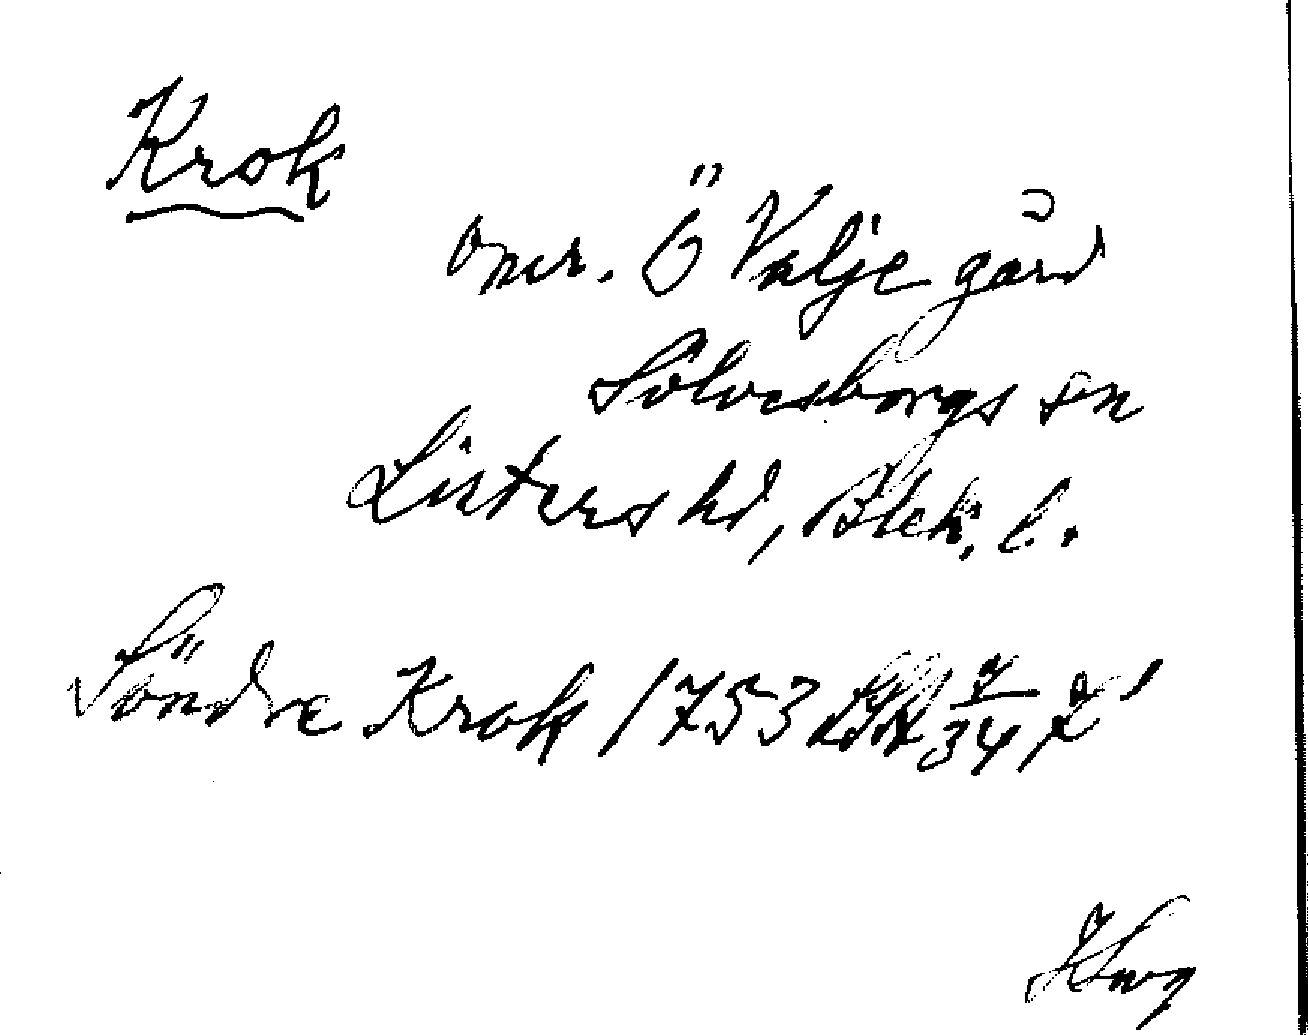 Krok
omr. Ö Valje gård
Sölvesborgs sn
Listers hd, Blek. l.
Söndre Krok 1753 LSA